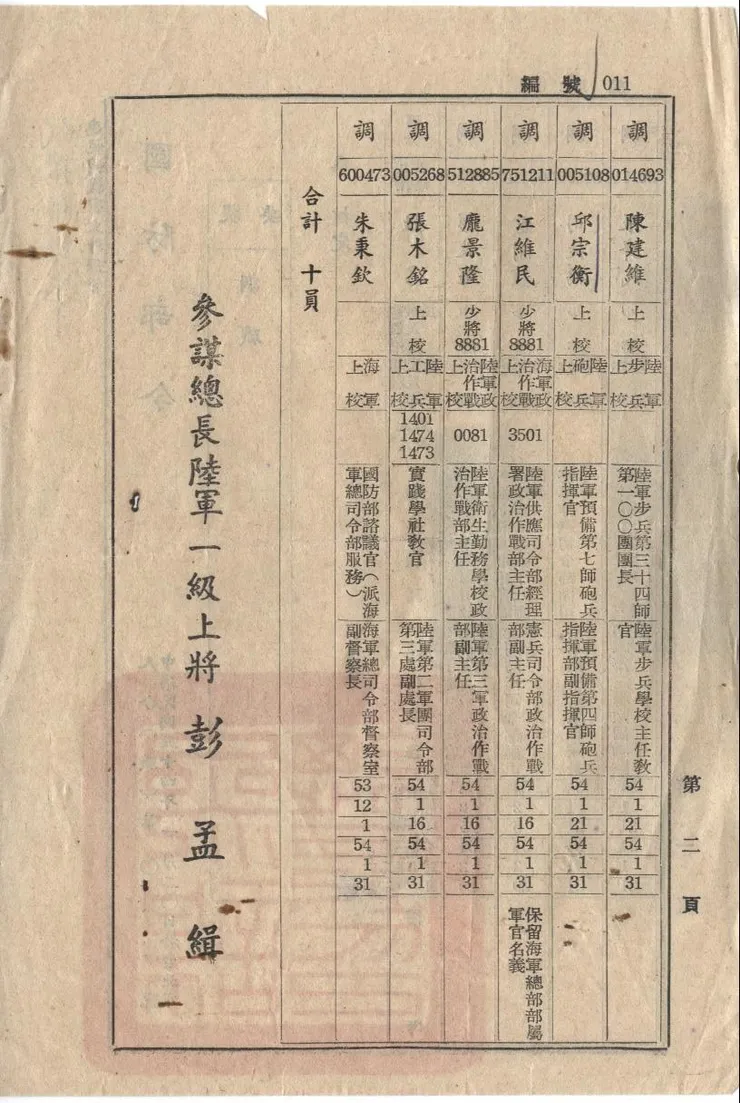 編號 011
調
014693
陳建維
上校
陸軍
步兵
上校
陸軍步兵第三十四師
第一〇〇團團長
陸軍步兵學校主任教
官
54
1
21
54
1
31
調
005108
邱宗衡
上校
陸軍
砲兵
上校
陸軍預備第七師砲兵
指揮官
陸軍預備第四師砲兵
指揮部副指揮官
54
1
21
54
1
31
調
751211
江維民
少將
8881
海軍政
治作戰
上校
3501
陸軍供應司令部經理
署政治作戰部主任
憲兵司令部政治作戰
部副主任
54
1
16
54
1
31
保留海軍總部部屬
軍官名義
調
512885
龐景隆
少將
8881
陸軍政
治作戰
上校
0081
陸軍衛生勤務學校政
治作戰部主任
陸軍第三軍政治作戰
部副主任
54
1
16
54
1
31
調
005268
張木銘
上校
陸軍
工兵
上校
1401
1474
1473
實踐學社教官
陸軍第二軍團司令部
第三處副處長
54
1
16
54
1
31
調
600473
朱秉欽
海軍
上校
國防部諮議官（派海
軍總司令部服務）
海軍總司令部督察室
副督察長
53
12
1
54
1
31
合計 十員
參謀總長陸軍一級上將 彭孟緝
第二頁